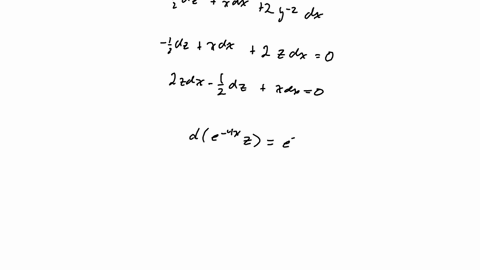 ½dz + xdx + 2y⁻² dx
-½dz + xdx + 2 z dx = 0
2zdx - ½dz + xdx = 0
d(e⁻⁴ˣz) = e⁻